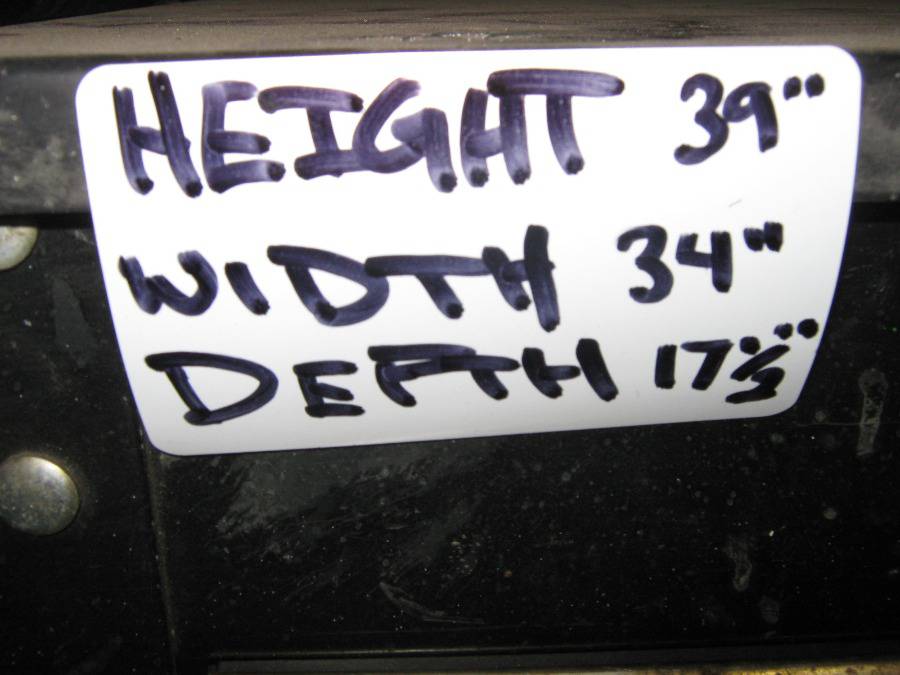 HEIGHT 39"
WIDTH 34"
DEPTH 17 1/2"